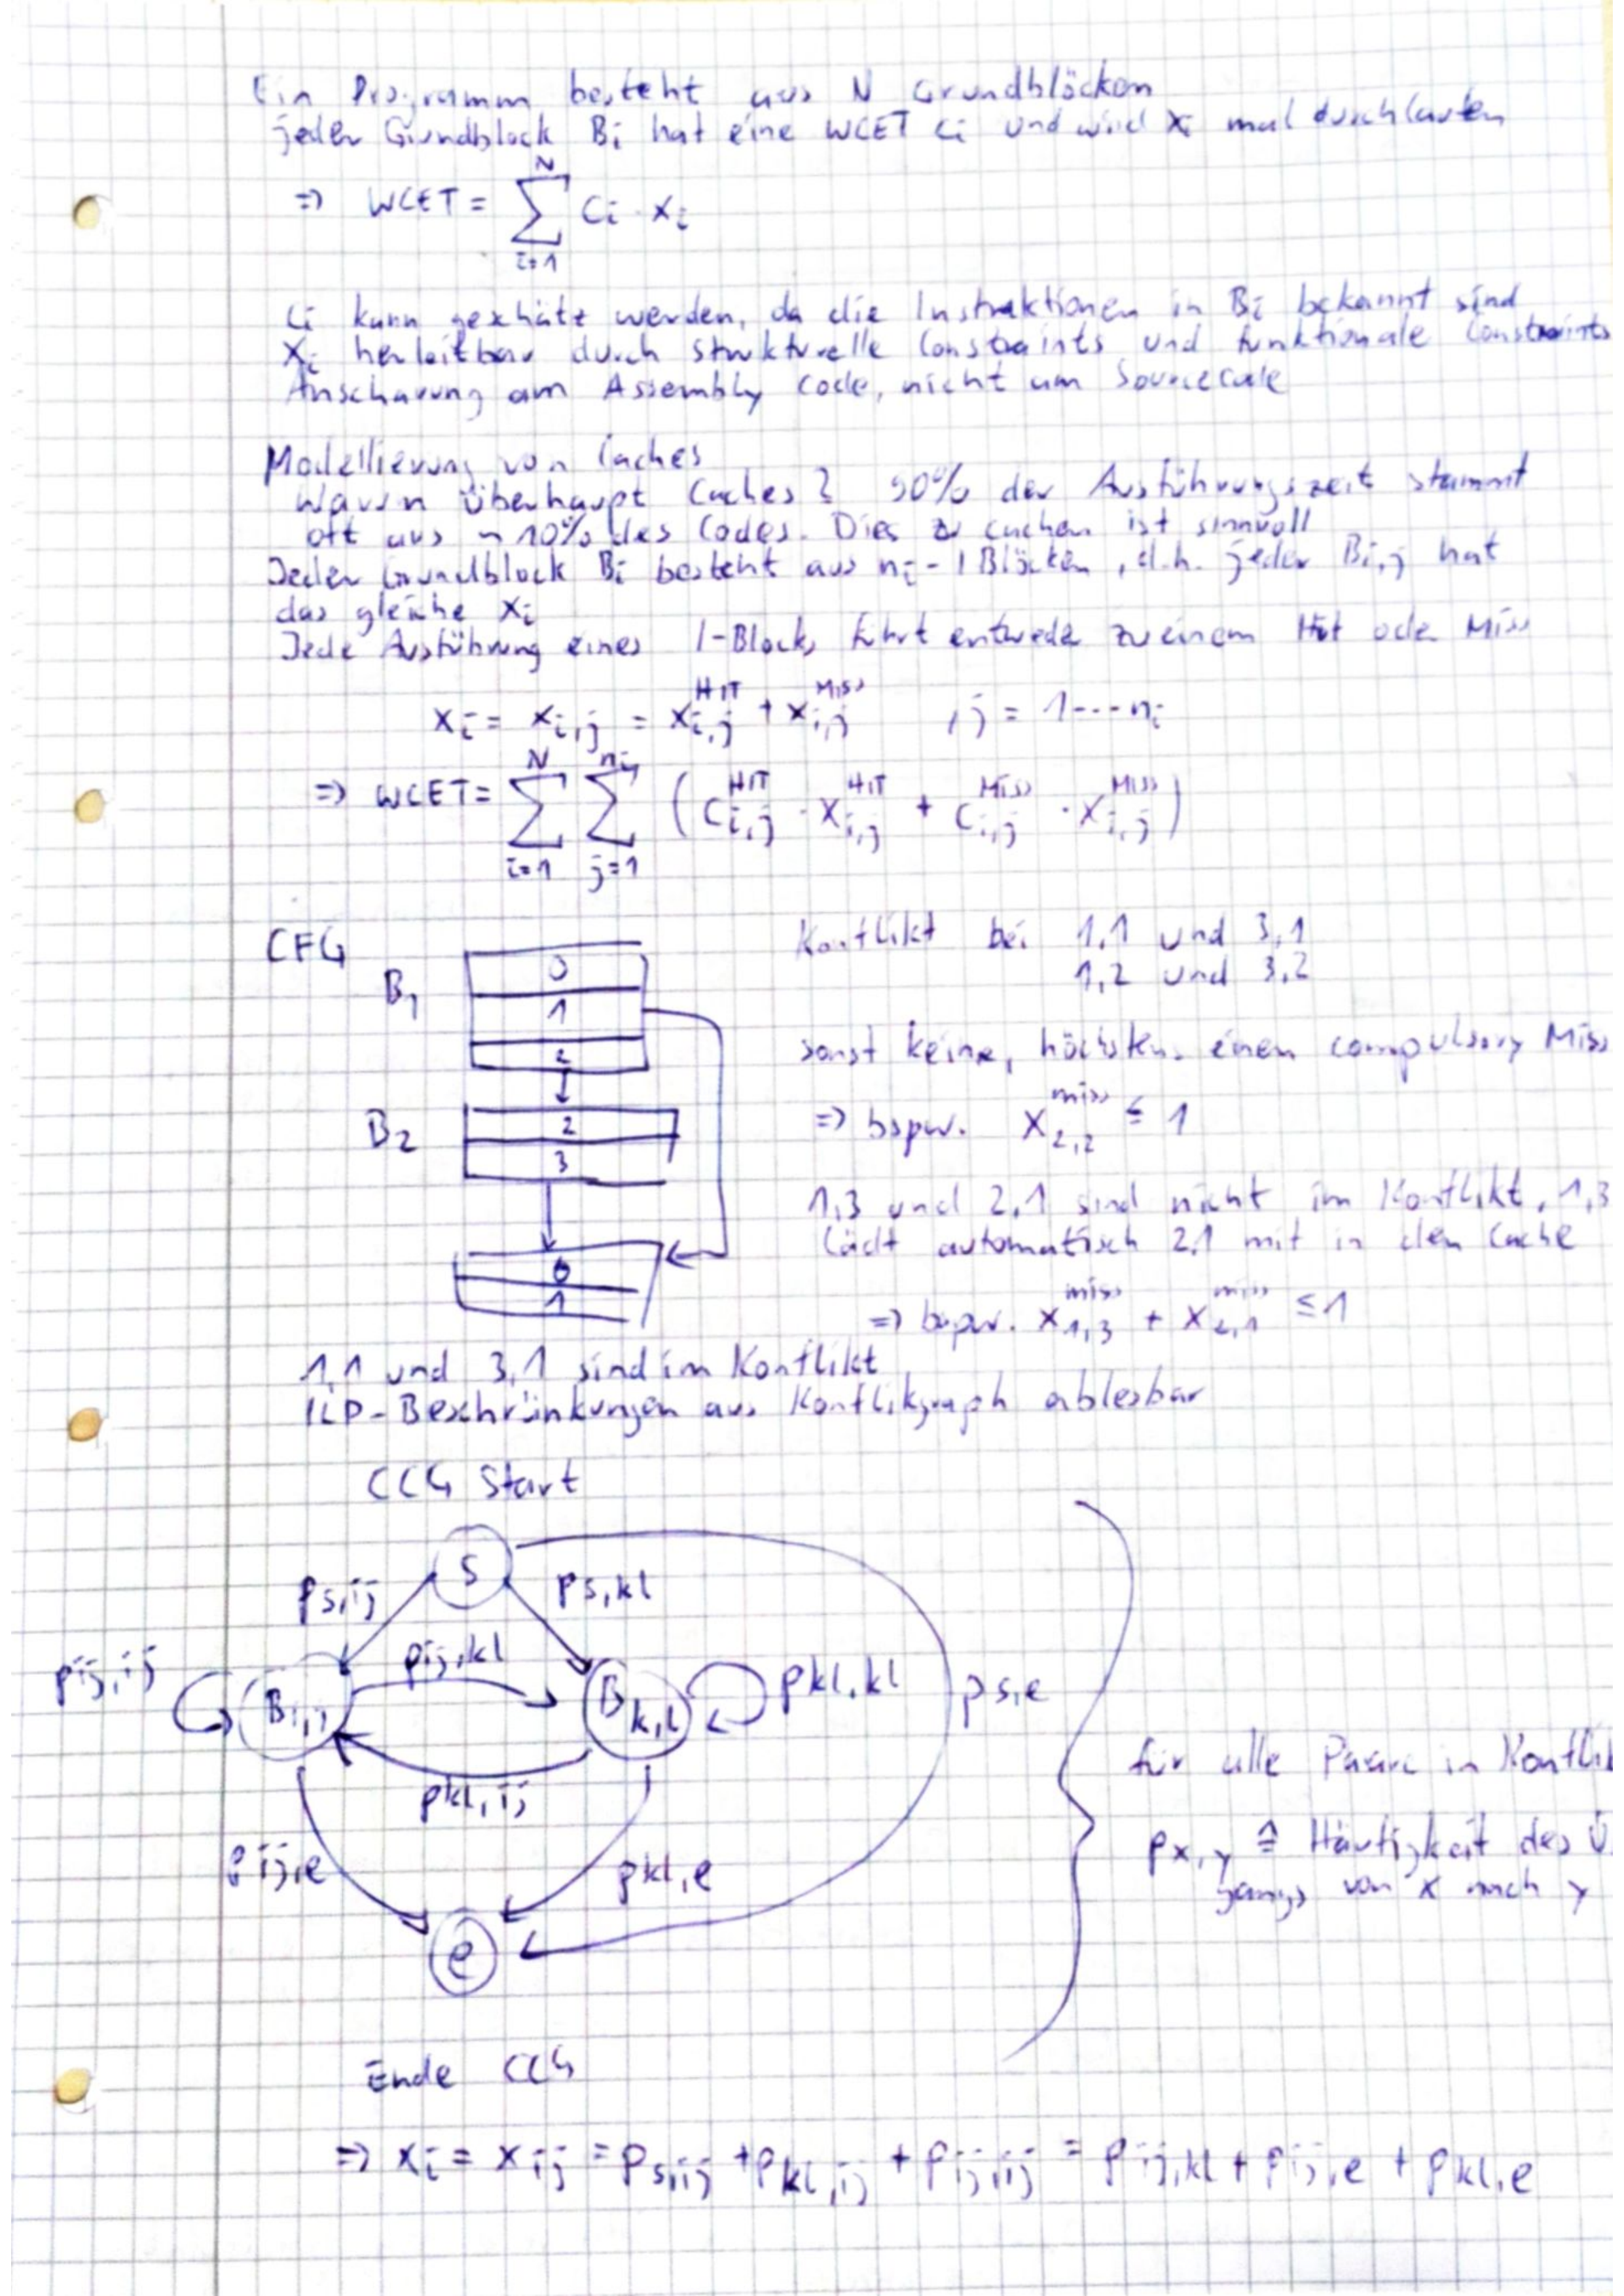 Ein Programm besteht aus N Grundblöcken
jeder Grundblock Bi hat eine WCET ci und wird xi mal durchlaufen
=> WCET = ∑_{i=1}^{N} Ci · xi
Ci kann geschätz werden, da die Instruktionen in Bi bekannt sind
Xi herleitbar durch strukturelle Constraints und funktionale Constraints
Anschauung am Assembly code, nicht am Sourcecode
Modellierung von Caches
Warum überhaupt Caches? 90% der Ausführungszeit stammt
oft aus ~10% des Codes. Dies zu cachen ist sinnvoll
Jeder Grundblock Bi besteht aus ni - l Blöcken, d.h. jeder Bi,j hat
das gleiche xi
Jede Ausführung eines l-Blocks führt entweder zu einem Hit oder Miss
xi = xi,j = x_{i,j}^{HIT} + x_{i,j}^{MISS} , j = 1---ni
=> WCET = ∑_{i=1}^{N} ∑_{j=1}^{ni} (C_{i,j}^{HIT} · X_{i,j}^{HIT} + C_{i,j}^{MISS} · X_{i,j}^{MISS})
CFG
B1
0
1
2
B2
2
3
0
1
Konflikt bei 1,1 und 3,1
1,2 und 3,2
sonst keine, höchstens einen compulsory Miss
=> bspw. X_{2,2}^{miss} ≤ 1
1,3 und 2,1 sind nicht im Konflikt, 1,3
lädt automatisch 2,1 mit in den Cache
=> bspw. X_{1,3}^{miss} + X_{2,1}^{miss} ≤ 1
1,1 und 3,1 sind im Konflikt
ILP-Beschränkungen aus Konfliktgraph ablesbar
CCG Start
s
ps,ij
ps,kl
pij,ij
pij,kl
Bi,j
Bk,l
pkl,kl
ps,e
pkl,ij
pij,e
pkl,e
e
für alle Paare in
px,y ≙ Häufigkeit des
gangs von x nach y
Ende CCG
=> xi = xij = ps,ij + pkl,ij + pij,ij = pij,kl + pij,e + pkl,e